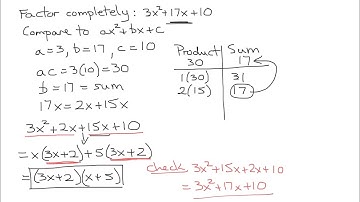 Factor completely: 3x²+17x+10
Compare to ax²+bx+c
a=3, b=17, c=10
ac=3(10)=30
b=17=sum
17x=2x+15x
3x²+2x+15x+10
=x(3x+2)+5(3x+2)
=(3x+2)(x+5)
Product Sum
30 17
1(30) 31
2(15) 17
check 3x²+15x+2x+10
=3x²+17x+10